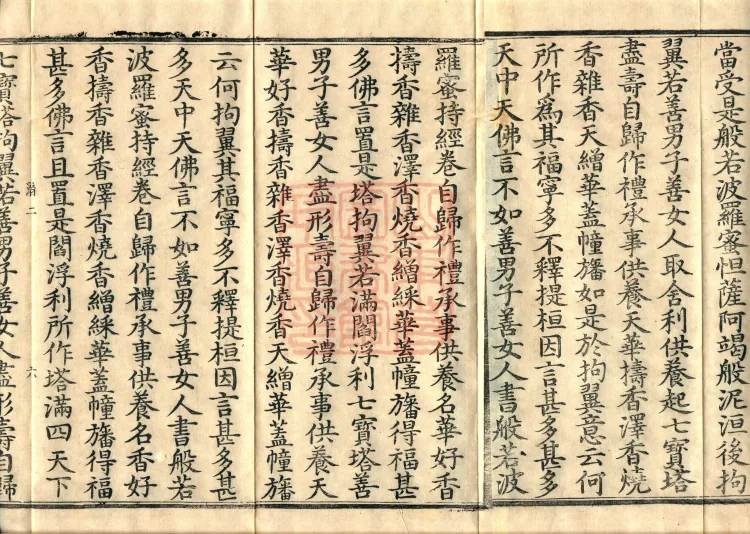 當受是般若波羅蜜怛薩阿竭般泥洹後拘
翼若善男子善女人取舍利供養起七寶塔
盡壽自歸作禮承事供養天華擣香澤香燒
香雜香天繒華蓋幢旛如是於拘翼意云何
所作為其福寧多不釋提桓因言甚多甚多
天中天佛言不如善男子善女人書般若波
羅蜜持經卷自歸作禮承事供養名華好香
擣香雜香澤香燒香繒綵華蓋幢旛得福甚
多佛言置是塔拘翼若滿閻浮利七寶塔善
男子善女人盡形壽自歸作禮承事供養天
華好香擣香雜香澤香燒香天繒華蓋幢旛
云何拘翼其福寧多不釋提桓因言甚多甚
多天中天佛言不如善男子善女人書般若
波羅蜜持經卷自歸作禮承事供養名香好
香擣香雜香澤香燒香繒綵華蓋幢旛得福
甚多佛言且置是閻浮利所作塔滿四天下
潛二
六
七寶塔拘翼若善男子善女人盡形壽自歸